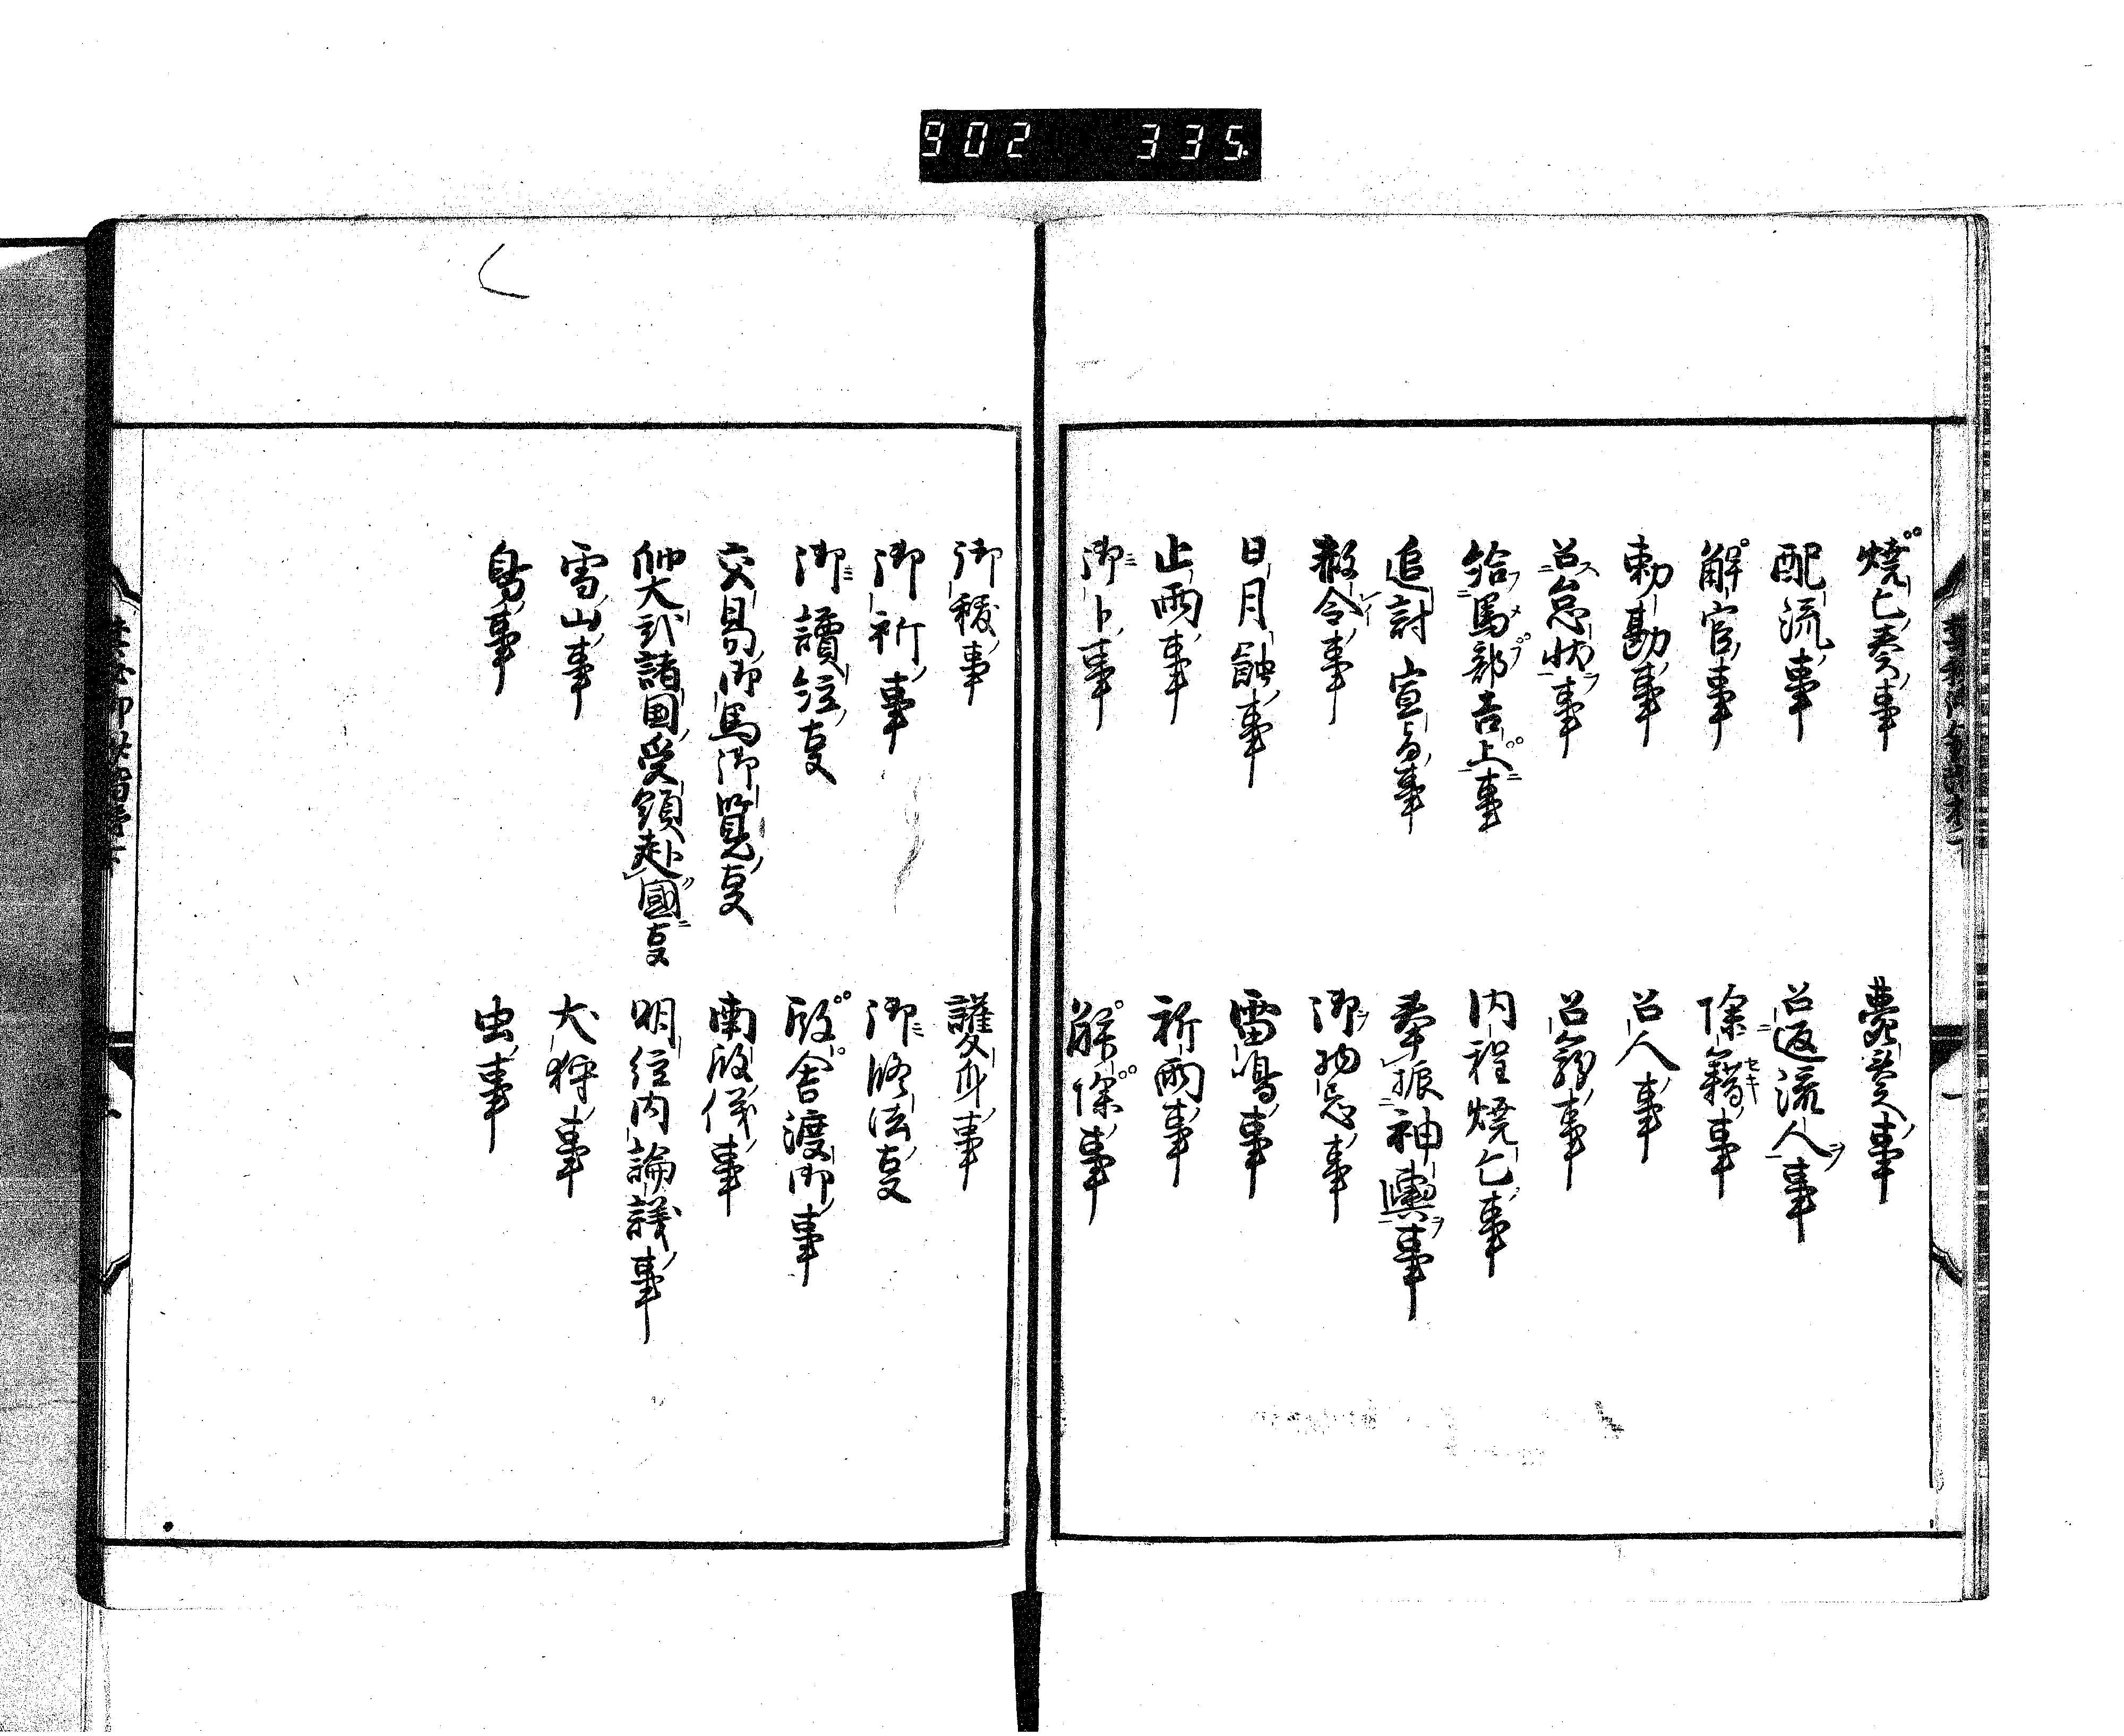 902 335
燒亡奏事
薨奏事
配流事
召返流人事
解官事
除籍事
勅勘事
召人事
召怠状事
召籠事
給馬部吉上事
内裡燒亡事
追討宣旨事
奉振神輿事
赦令事
御物忌事
日月蝕事
雷鳴事
止雨事
祈雨事
御卜事
解除事
御祓事
護身事
御祈事
御修法事
御讀經事
殿舎渡御事
交易御馬御覧事
南殿儀事
帥大弐諸国受領赴國事
明経内論議事
雪山事
犬狩事
鳥事
虫事